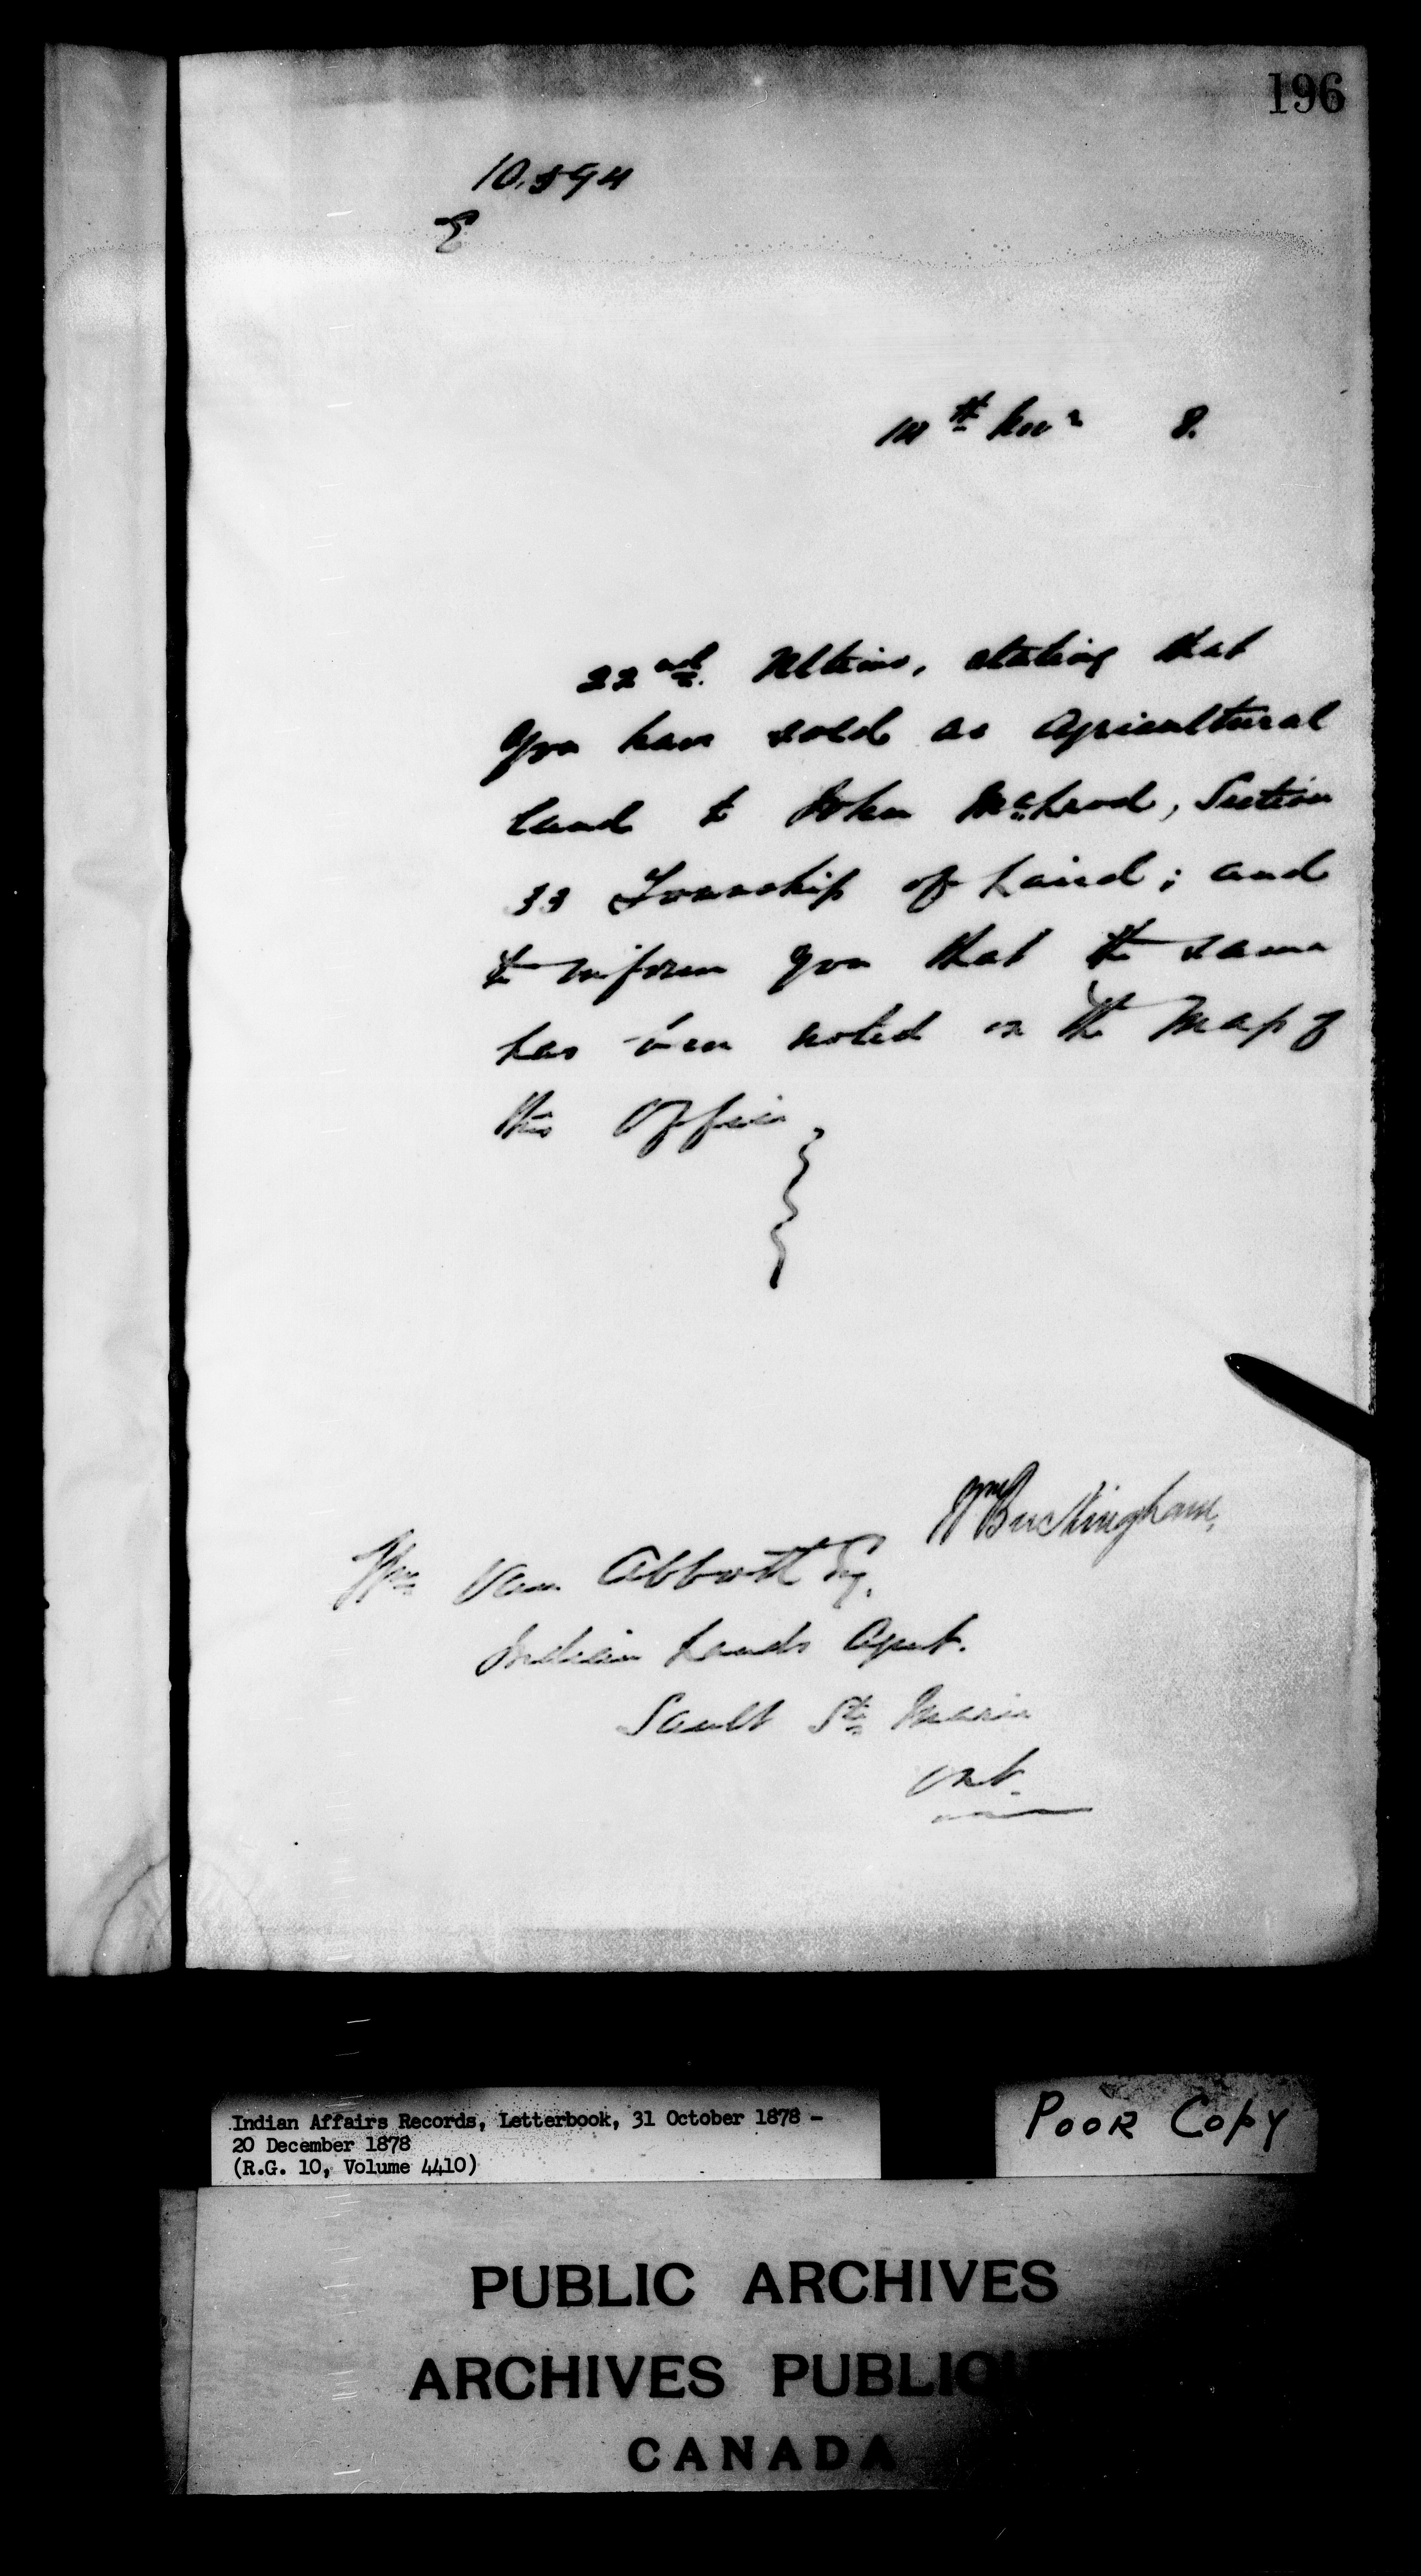 196
10,594
E
14th Novr 8.
22nd Ultimo, stating that
you have sold as Agricultural
land to John McLeod, Section
33 Township of Laird; and
to inform you that the same
has been noted on the Map of
this Office
Wm Buckingham,
Wm Van Abbott Esq.
Indian Lands Agent.
Sault Ste Marie
Ont.
Indian Affairs Records, Letterbook, 31 October 1878 -
20 December 1878
(R.G. 10, Volume 4410)
POOR COPY
PUBLIC ARCHIVES
ARCHIVES PUBLIQU
CANADA